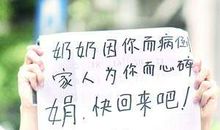 奶奶因你而病倒
家人为你而心碎
娟,快回来吧!